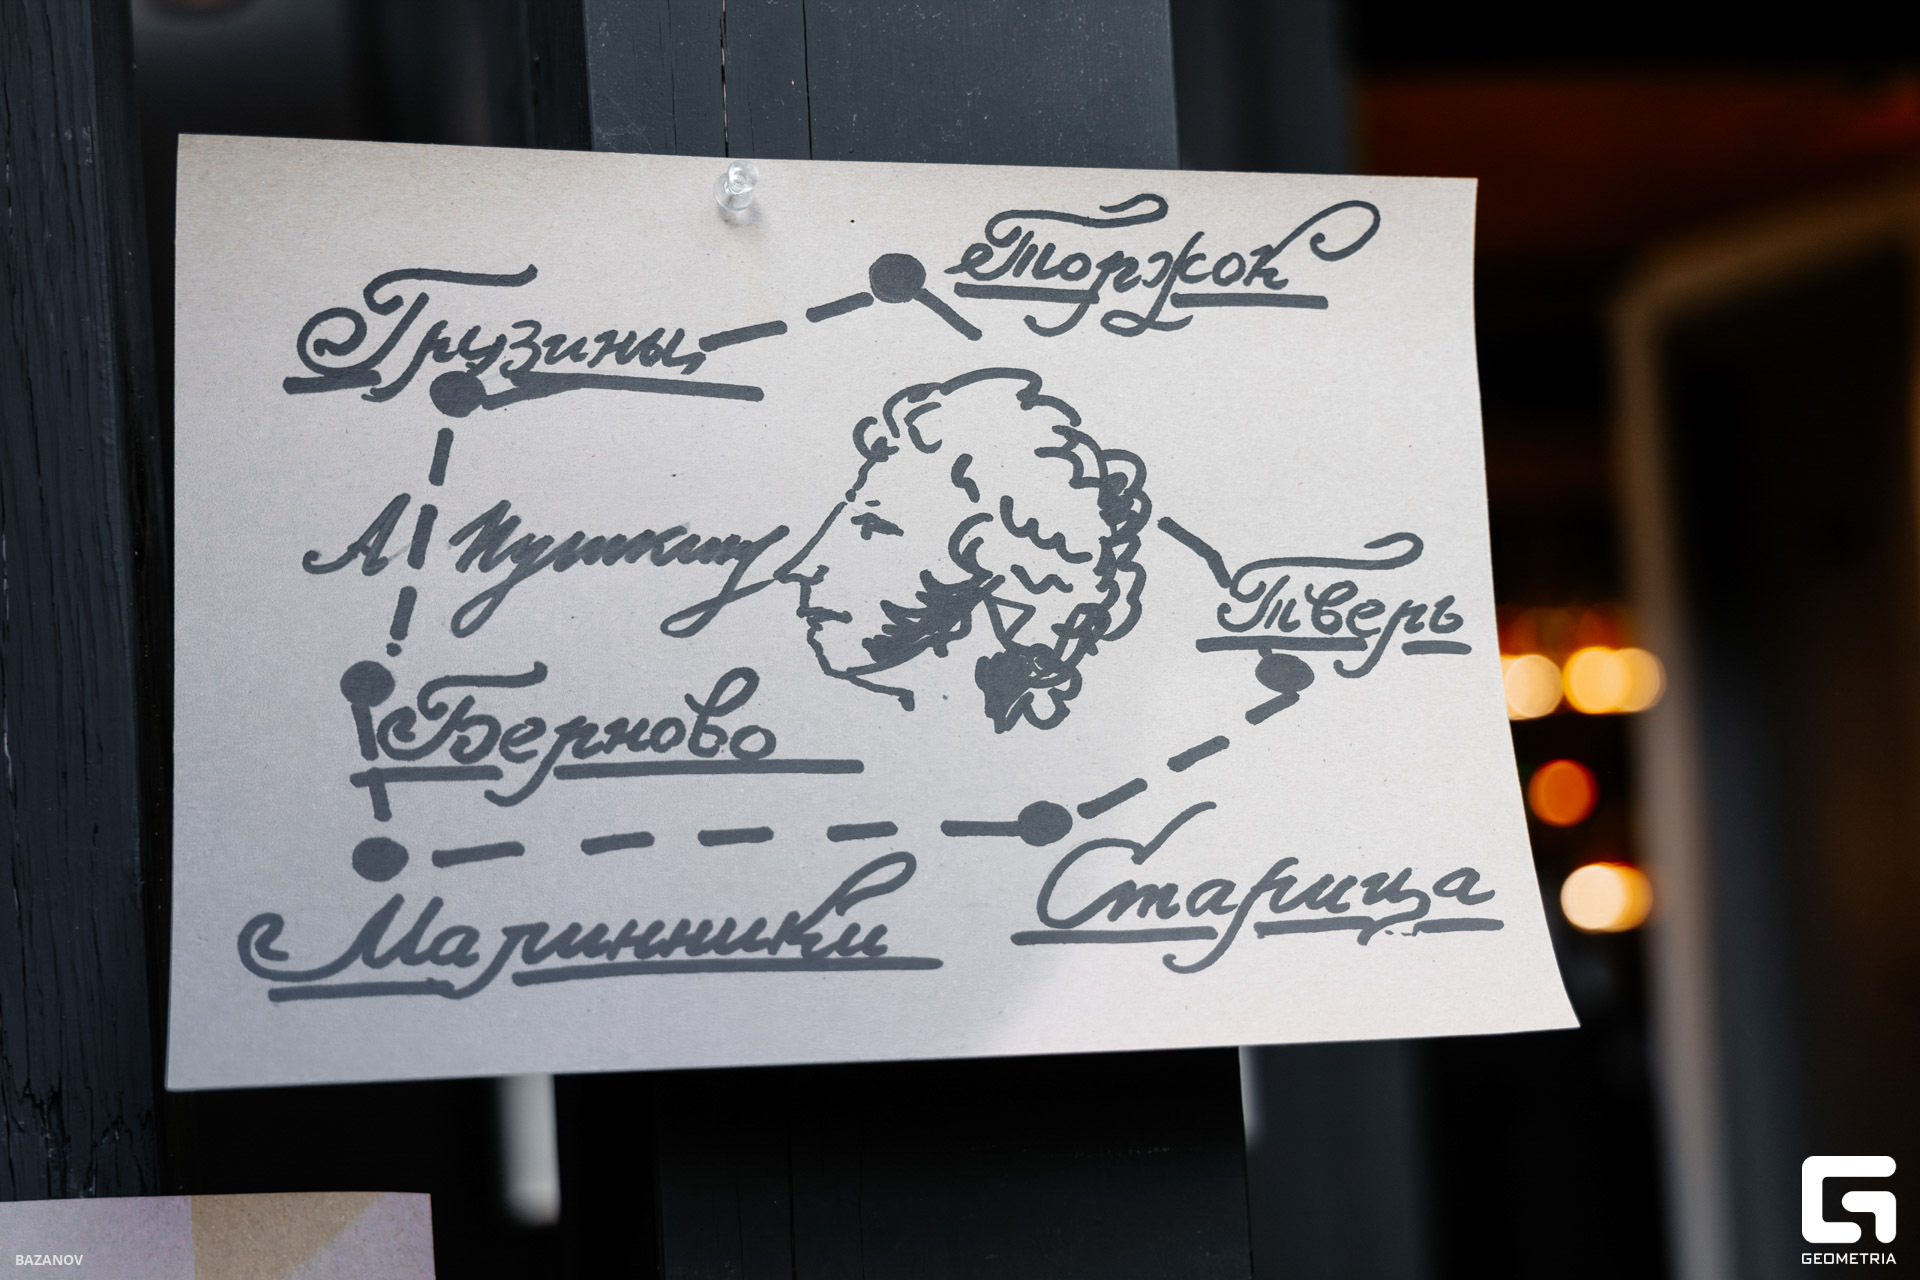 Торжок
Грузины
А Пушкин
Тверь
Берново
Старица
Маринники
BAZANOV
GEOMETRIA